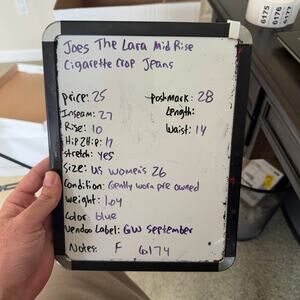 Joes The Lara Mid Rise
Cigarette Crop Jeans
price: 25 Poshmark: 28
Inseam: 27 Length:
Rise: 10 Waist: 14
Hip 2 Hip: 17
stretch: yes
Size: US women's 26
Condition: Gently worn pre owned
Weight: 1oz
Color: blue
Vendoo Label: GW September
Notes: F 6174
6175
6176
6177